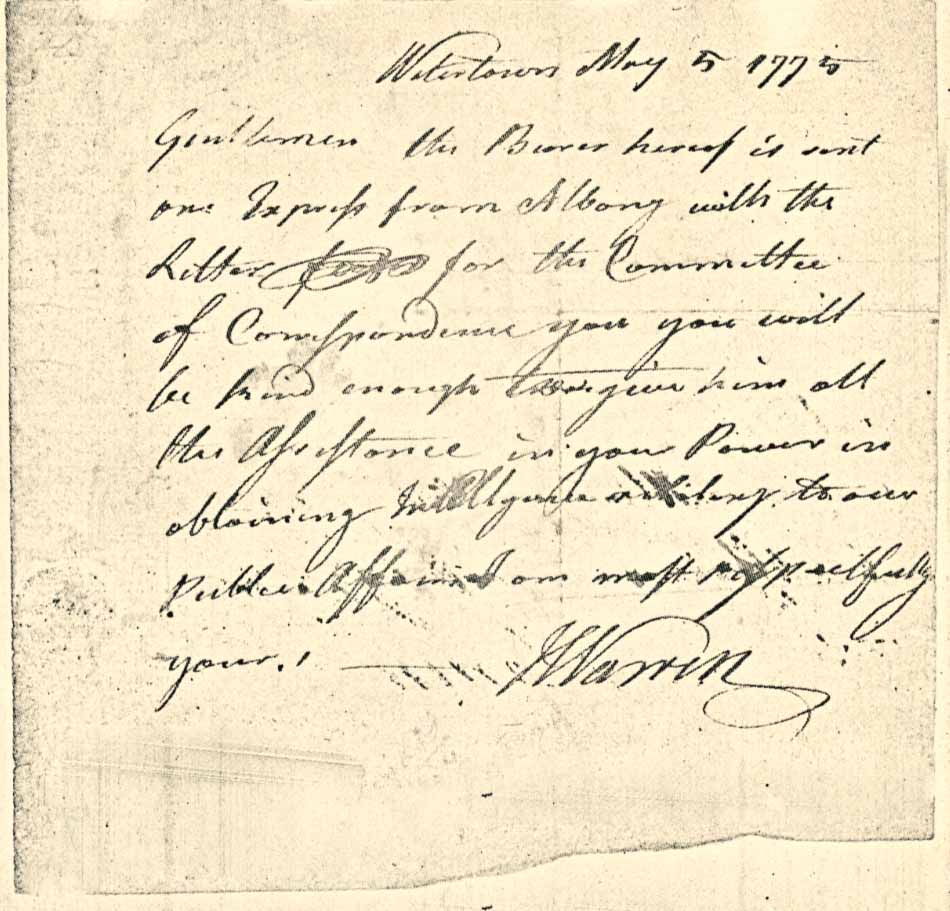 Watertown May 5 1775
Gentlemen the Bearer hereof is sent
on: Express from Albany with the
Letter for the Committee
of Correspondence you you will
be kind enough give him all
the Assistance in your Power in
obtaining Intelligence relating to our
Public Affairs I am most respectfully
yours,
J Warren